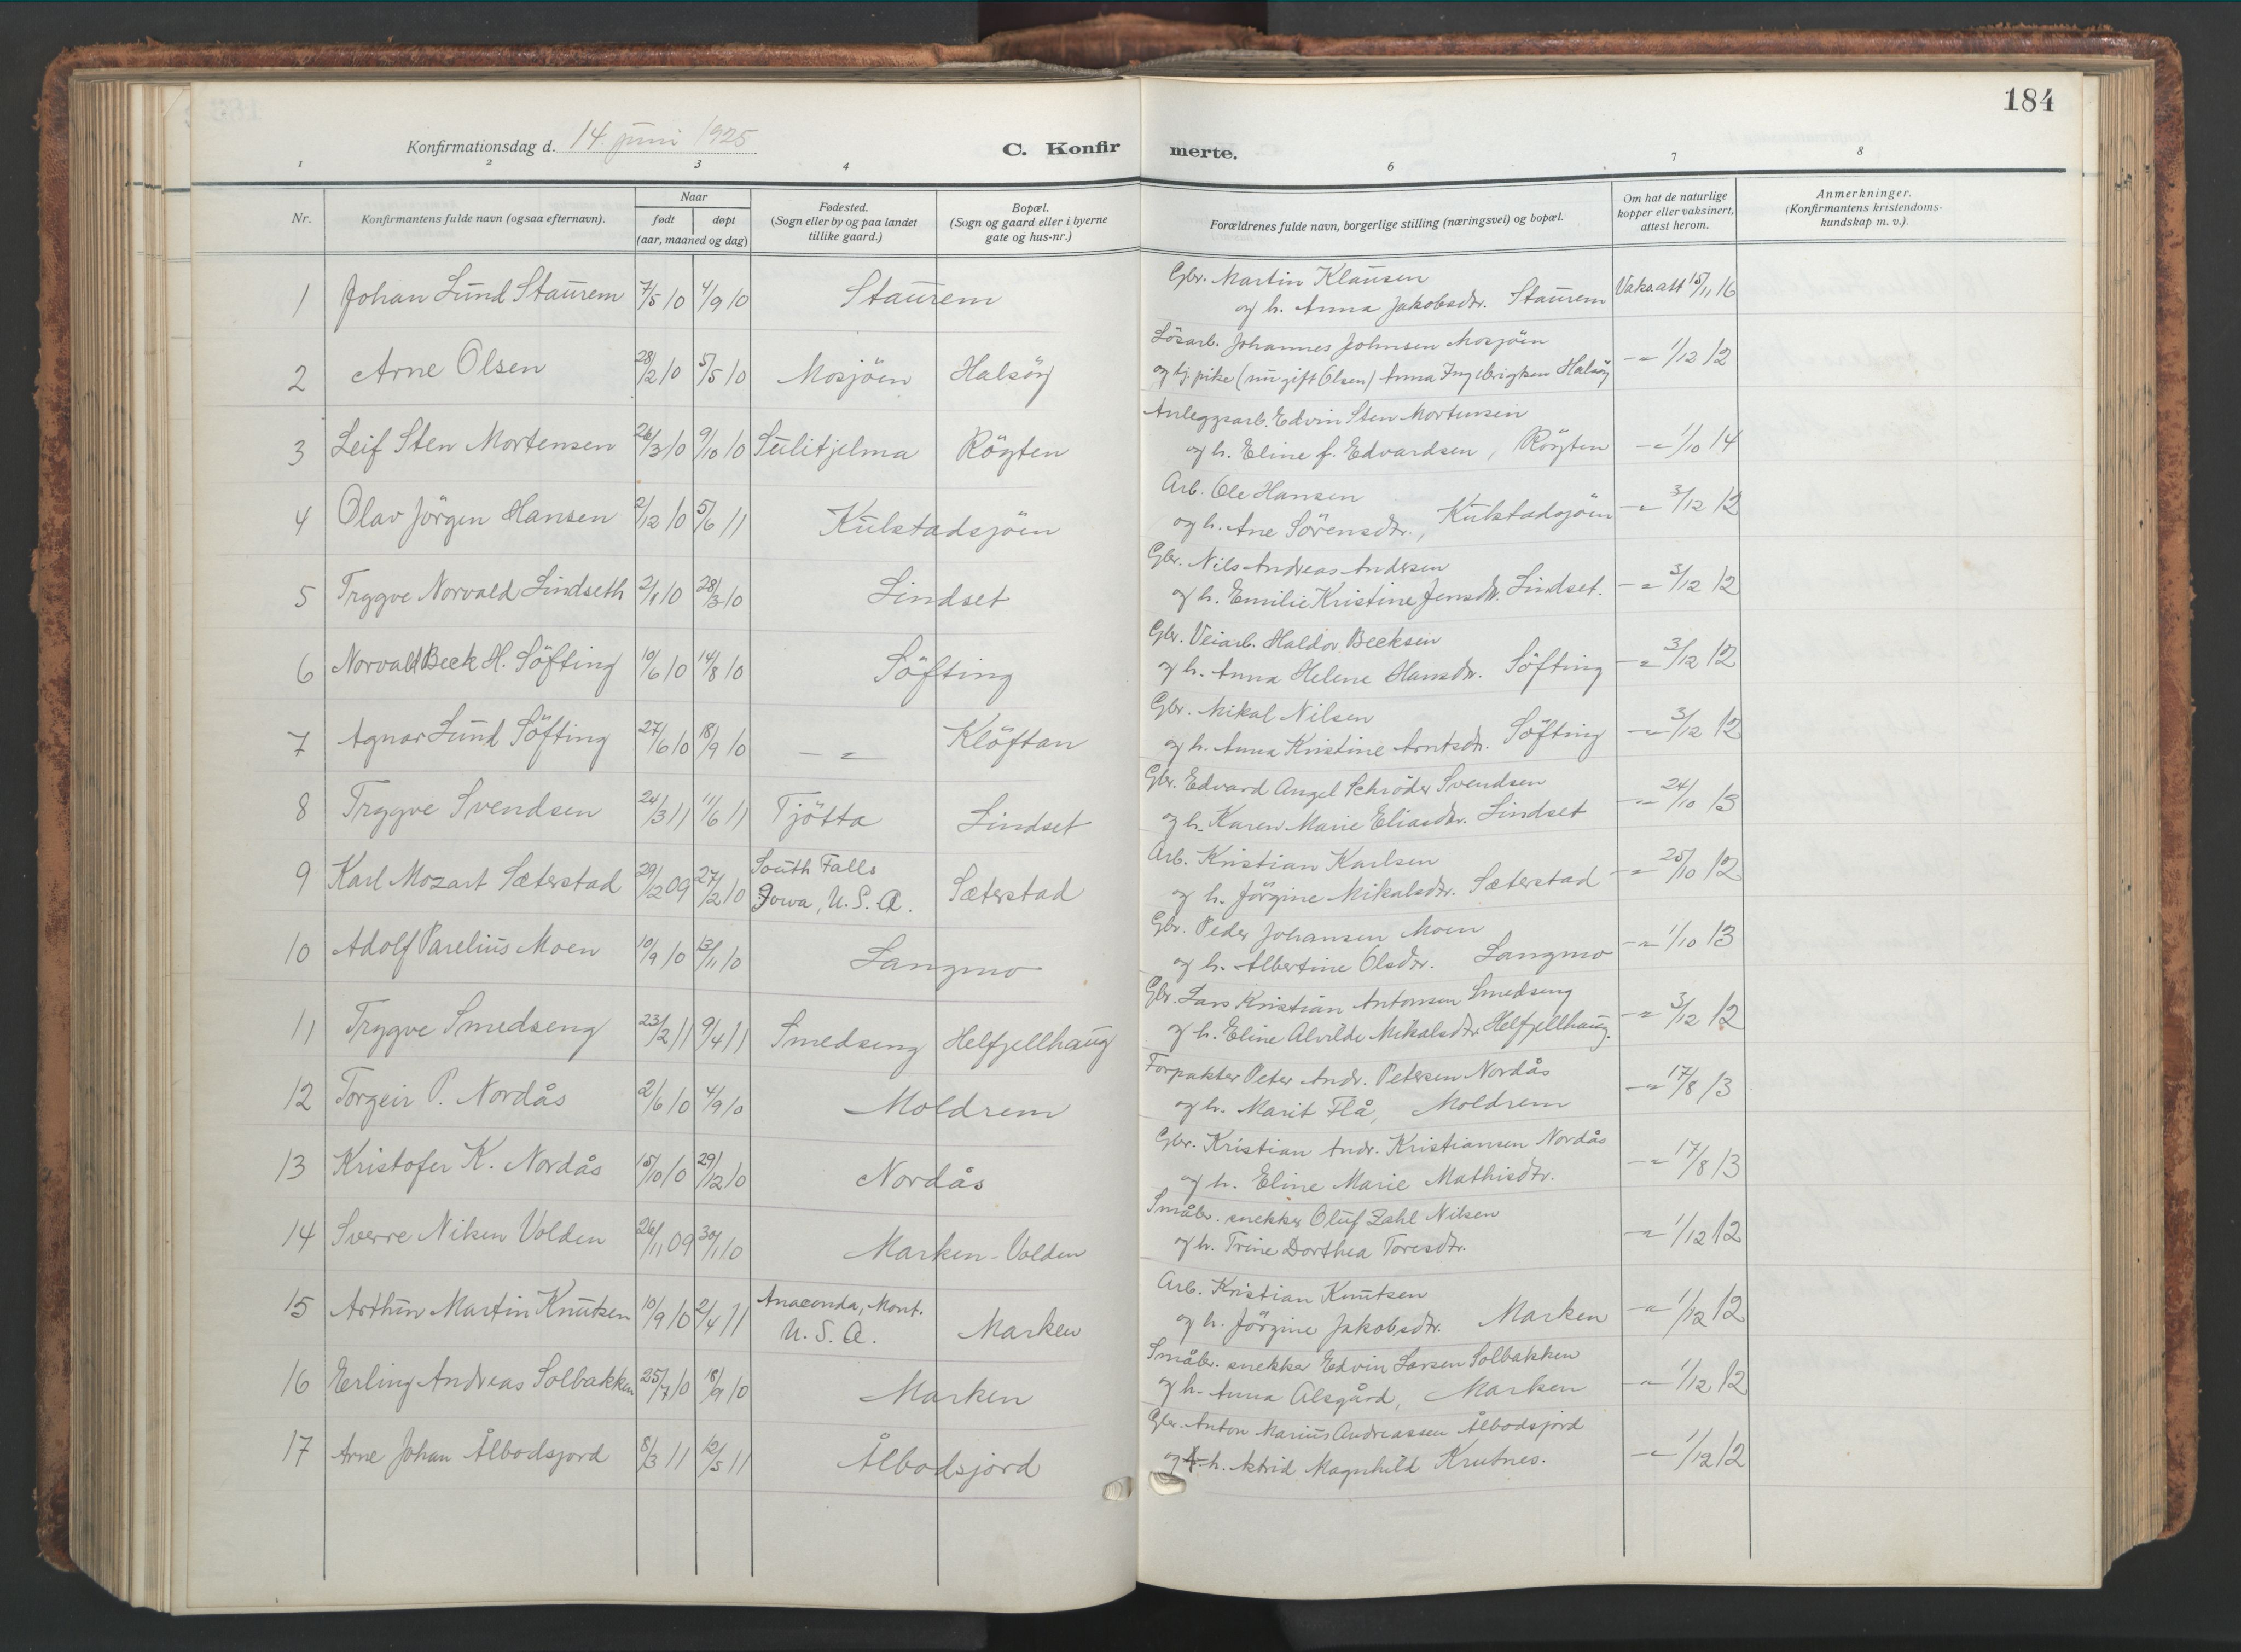 184
Konfirmationsdag d. 14. juni 1925
C. Konfirmerte.
1 2 3 4 6 7 8
Nr.
Konfirmantens fulde navn (ogsaa efternavn).
Naar
født døpt
(aar, maaned og dag)
Fødested.
(Sogn eller by og paa landet
tillike gaard.)
Bopæl.
(Sogn og gaard eller i byerne
gate og hus-nr.)
Forældrenes fulde navn, borgerlige stilling (næringsvei) og bopæl.
Om hat de naturlige
kopper eller vaksinert,
attest herom.
Anmerkninger.
(Konfirmantens kristendoms-
kundskap m. v.).
1 Johan Lund Staurem 7/5 10 4/9 10 Staurem
Gbr. Martin Klausen
og h. Anna Jakobsdtr. Staurem Vaks.att 15/11 16
2 Arne Olsen 28/2 10 5/5 10 Mosjöen Halsöy
Lösarb. Johannes Johnsen Mosjöen
og tj. pike (nu gift Olsen) Anna Ingebrigtsen Halsöy -"- 1/12 12
3 Leif Sten Mortensen 26/3 10 9/10 10 Sulitjelma Röyten
Anleggsarb. Edvin Sten Mortensen
og h. Eline f. Edvardsen, Röyten -"- 1/10 14
4 Olav Jörgen Hansen 2/12 10 5/6 11 Kulstadsjöen
Arb. Ole Hansen
og h. Ane Sörensdtr., Kulstadsjöen -"- 3/12 12
5 Trygve Norvald Lindseth 2/1 10 28/3 10 Lindset
Gbr. Nils Andreas Andersen
og h. Emilie Kristine Jensdtr. Lindset. -"- 3/12 12
6 Norvald Beck H. Söfting 10/6 10 14/8 10 Söfting
Gbr. Veiarb. Haldor Becksen
og h. Anna Helene Hansdtr. Söfting -"- 3/12 12
7 Agnar Lund Söfting 27/6 10 18/9 10 -"- Klöftan
Gbr. Mikal Nilsen
og h. Anna Kristine Arntsdtr. Söfting -"- 3/12 12
8 Trygve Svendsen 24/3 11 11/6 11 Tjötta Lindset
Gbr. Edvard Angel Schröder Svendsen
og h. Karen Marie Eliasdtr. Lindset -"- 24/10 13
9 Karl Mozart Sæterstad 29/12 09 27/2 10 South Falls
Jowa, U.S.A. Sæterstad
Arb. Kristian Karlsen
og h. Jörgine Mikalsdtr. Sæterstad -"- 25/10 12
10 Adolf Parelius Moen 10/9 10 13/11 10 Langmo
Gbr. Peder Johansen Moen
og h. Albertine Olsdtr. Langmo -"- 1/10 13
11 Trygve Smedseng 23/2 11 9/4 11 Smedseng Helfjellhaug
Gbr. Lars Kristian Antonsen Smedseng
og h. Eline Alvilde Mikalsdtr. Helfjellhaug. -"- 3/12 12
12 Torgeir P. Nordås 2/6 10 4/9 10 Moldrem
Forpakter Peter Andr. Petersen Nordås
og h. Marit Flå, Moldrem -"- 17/8 13
13 Kristofer K. Nordås 15/10 10 29/12 10 Nordås
Gbr. Kristian Andr. Kristiansen Nordås
og h. Eline Marie Mathisdtr. -"- 17/8 13
14 Sverre Nilsen Volden 26/11 09 30/1 10 Marken-Volden
Småbr. snekker Oluf Zahl Nilsen
og h. Trine Dorthea Toresdtr. -"- 1/12 12
15 Arthur Martin Knutsen 10/9 10 2/4 11 Anaconda, Mont.
U.S.A. Marken
Arb. Kristian Knutsen
og h. Jörgine Jakobsdtr. Marken -"- 1/12 12
16 Erling Andreas Solbakken 25/7 10 18/9 10 Marken
Småbr. snekker Edvin Larsen Solbakken
og h. Anna Alsgård, Marken -"- 1/12 12
17 Arne Johan Ålbodsjord 8/3 11 12/5 11 Ålbodsjord
Gbr. Anton Marius Andreassen Ålbodsjord
og h. Astrid Magnhild Krutnes. -"- 1/12 12